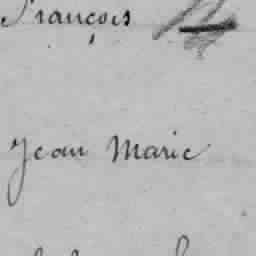 François
Jean Marie